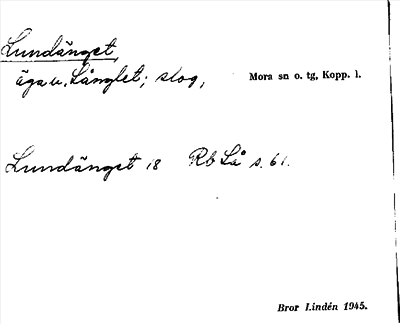 Lundänget,
äga u. Långlet; slog,
Mora sn o. tg, Kopp. l.
Lundänget 18 Rb Lå s. 61.
Bror Lindén 1945.